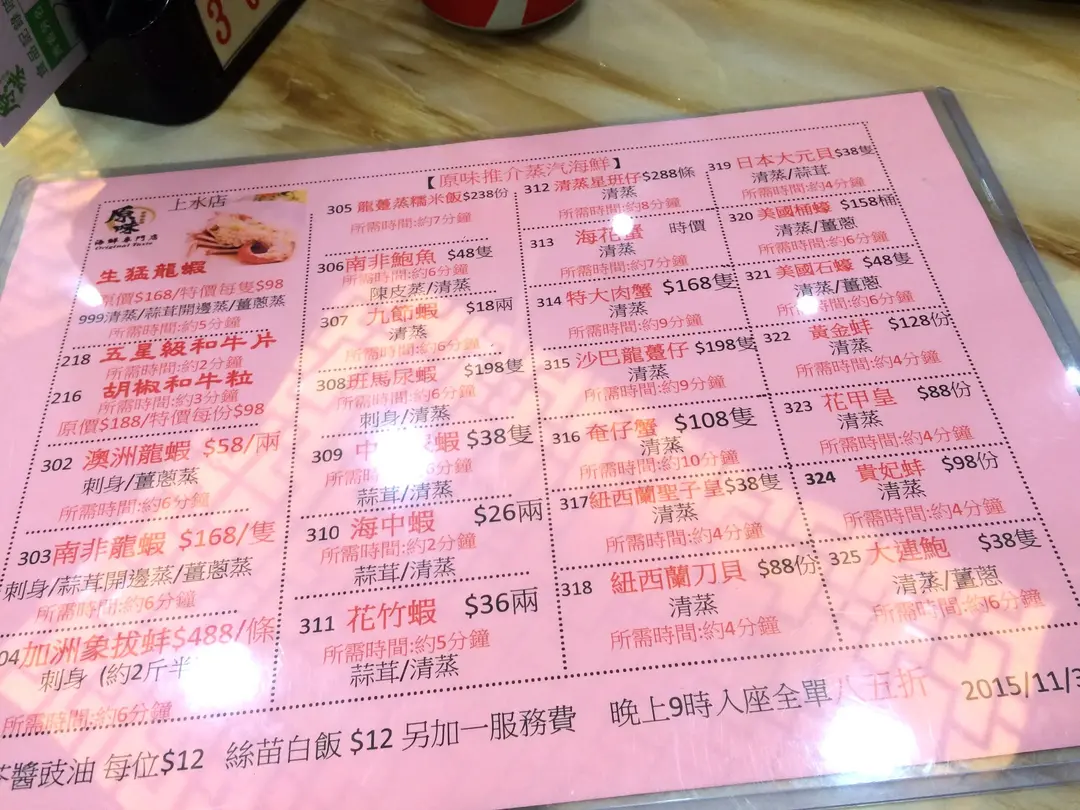 【原味推介蒸汽海鮮】
上水店
原味
海鮮專門店
Original Taste
生猛龍蝦
原價$168/特價每隻$98
999清蒸/蒜茸開邊蒸/薑蔥蒸
所需時間:約5分鐘
218 五星級和牛片
所需時間:約2分鐘
216 胡椒和牛粒
所需時間:約3分鐘
原價$188/特價每份$98
302 澳洲龍蝦 $58/兩
刺身/薑蔥蒸
所需時間:約6分鐘
303南非龍蝦 $168/隻
刺身/蒜茸開邊蒸/薑蔥蒸
所需時間:約6分鐘
04加洲象拔蚌$488/條
刺身 (約2斤半
所需時間:約6分鐘
305 龍躉蒸糯米飯$238份
所需時間:約7分鐘
306南非鮑魚 $48隻
所需時間:約6分鐘
陳皮蒸/清蒸
307 九節蝦 $18兩
清蒸
所需時間:約6分鐘
308班馬尿蝦 $198隻
所需時間:約6分鐘
刺身/清蒸
309 中 蝦 $38隻
所需時間:約6分鐘
蒜茸/清蒸
310 海中蝦 $26兩
所需時間:約2分鐘
蒜茸/清蒸
311 花竹蝦 $36兩
所需時間:約5分鐘
蒜茸/清蒸
312 清蒸星班仔$288條
清蒸
所需時間:約8分鐘
313 海花蟹 時價
清蒸
所需時間:約7分鐘
314 特大肉蟹 $168隻
清蒸
所需時間:約9分鐘
315 沙巴龍躉仔 $198隻
清蒸
所需時間:約9分鐘
316 奄仔蟹 $108隻
清蒸
所需時間:約10分鐘
317紐西蘭聖子皇$38隻
清蒸
所需時間:約4分鐘
318 紐西蘭刀貝 $88份
清蒸
所需時間:約4分鐘
319 日本大元貝$38隻
清蒸/蒜茸
所需時間:約4分鐘
320 美國桶蠔 $158桶
清蒸/薑蔥
所需時間:約6分鐘
321 美國石蠔 $48隻
清蒸/薑蔥
所需時間:約6分鐘
322 黃金蚌 $128份
清蒸
所需時間:約4分鐘
323 花甲皇 $88份
清蒸
所需時間:約4分鐘
324 貴妃蚌 $98份
清蒸
所需時間:約4分鐘
325 大連鮑 $38隻
清蒸/薑蔥
所需時間:約6分鐘
醬豉油 每位$12 絲苗白飯 $12 另加一服務費 晚上9時入座全單八五折 2015/11/3